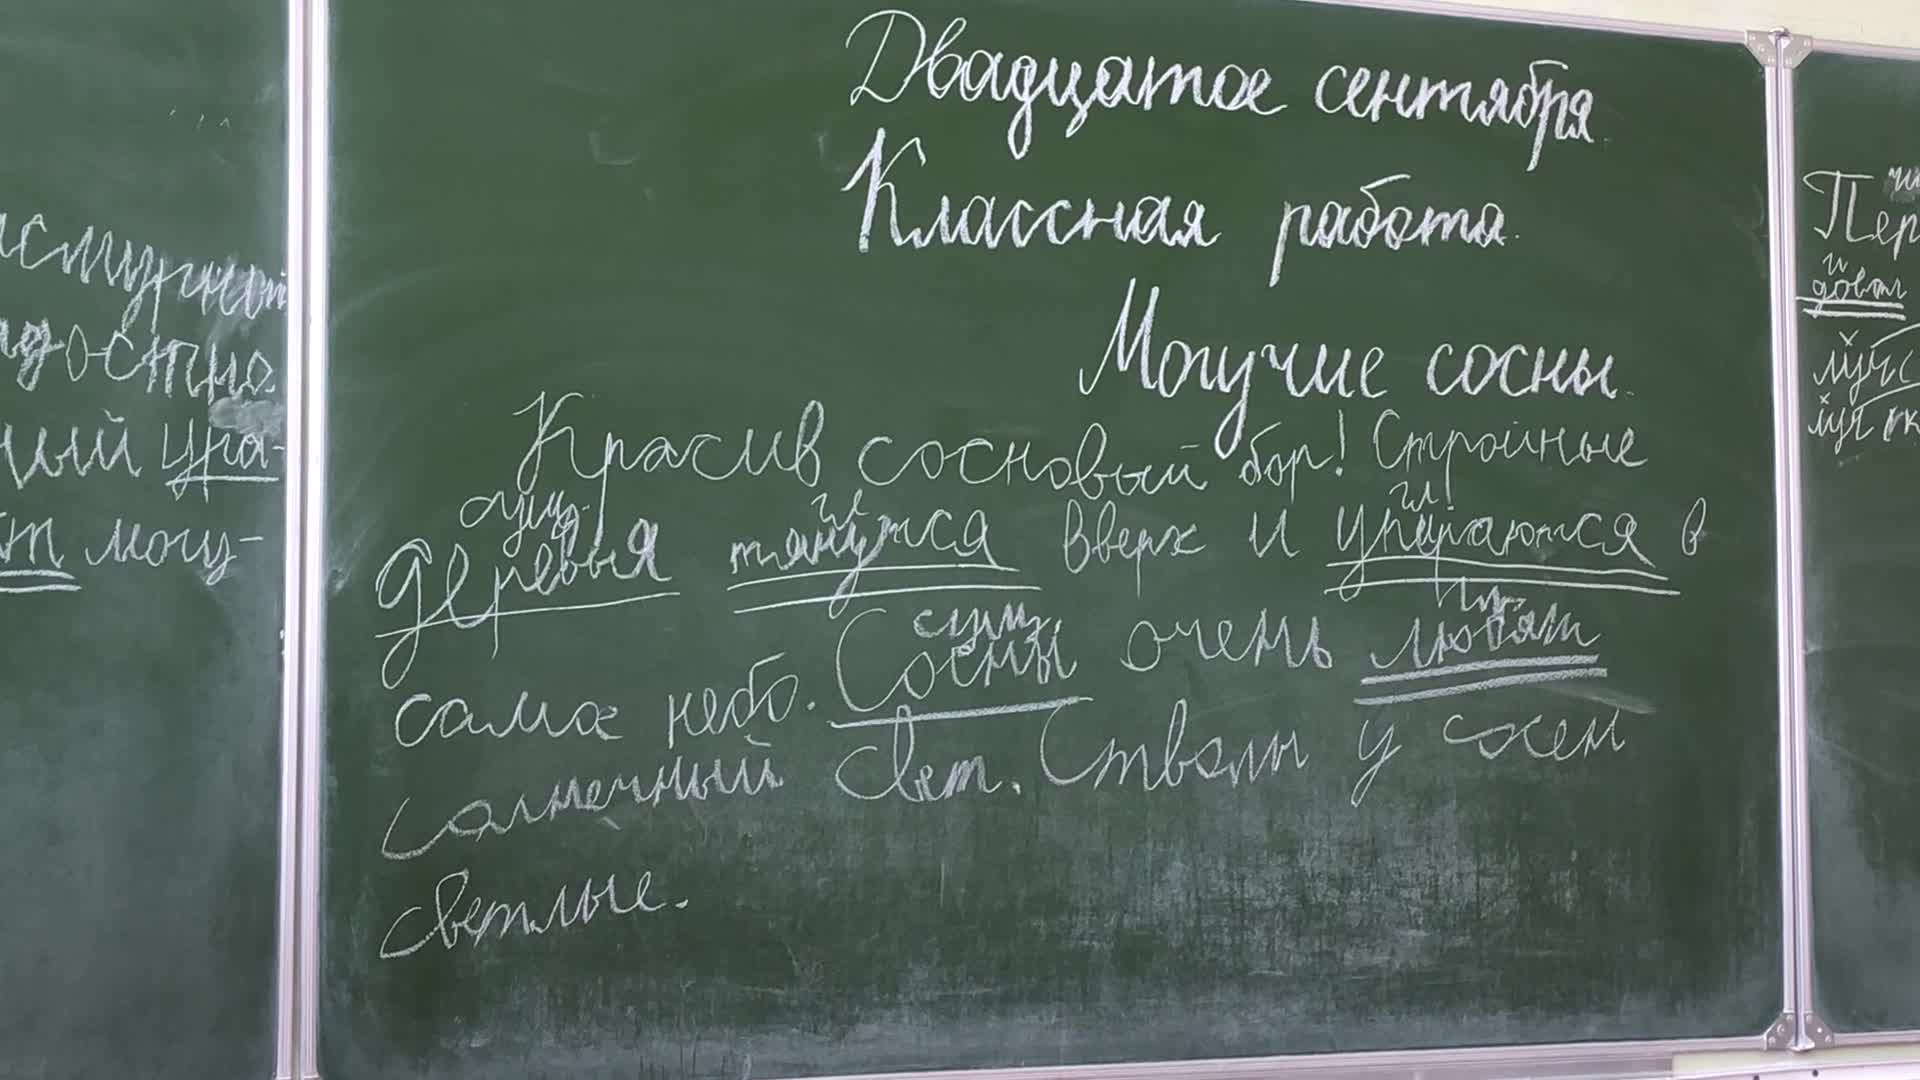 Двадцатое сентября.
Классная работа.
Могучие сосны.
Красив сосновый бор! Стройные
сущ. гл. гл.
деревья тянутся вверх и упираются в
сущ. гл.
само небо. Сосны очень любят
солнечный свет. Стволы у сосен
светлые.
могу-